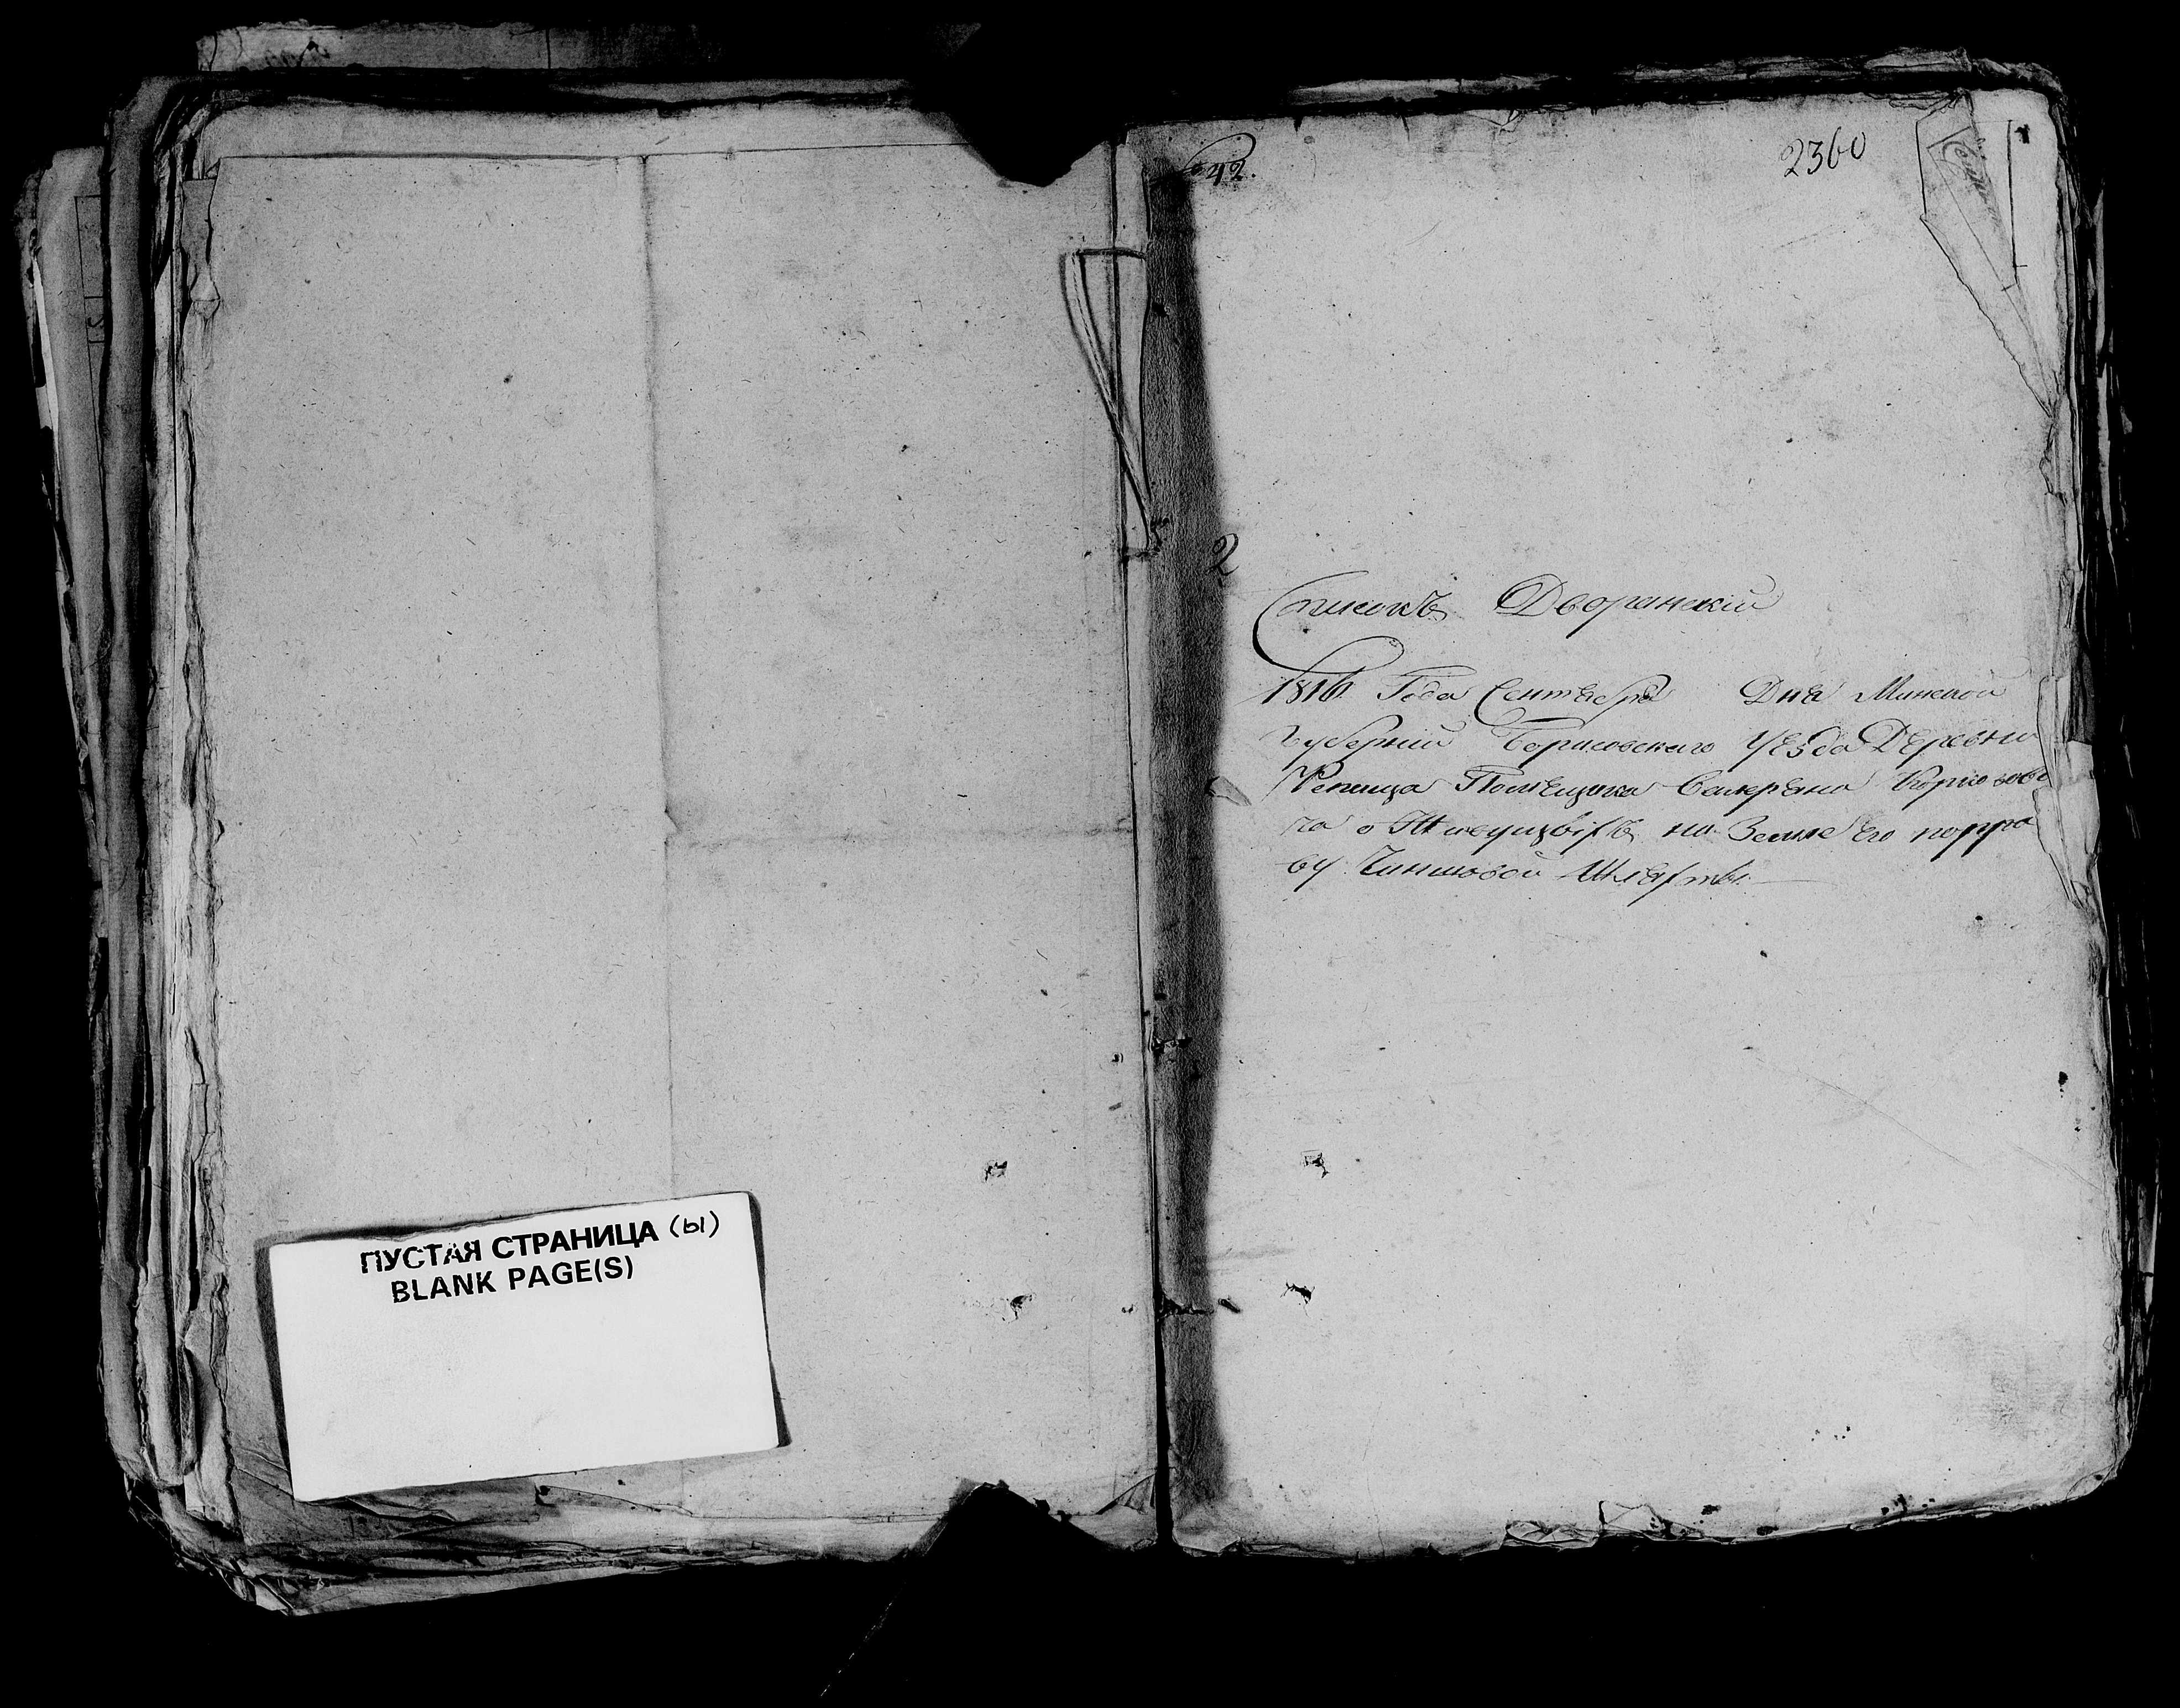 ПУСТАЯ СТРАНИЦА (ы)
BLANK PAGE(S)
42.
2360
2
Списокъ Дворянский
1816 Года Сентября Дня Минской
Губернии Борисовского Уезда Деревни
Репища Помещика Валеряна
на Земле Его
ву Чиншовой Шляхты.